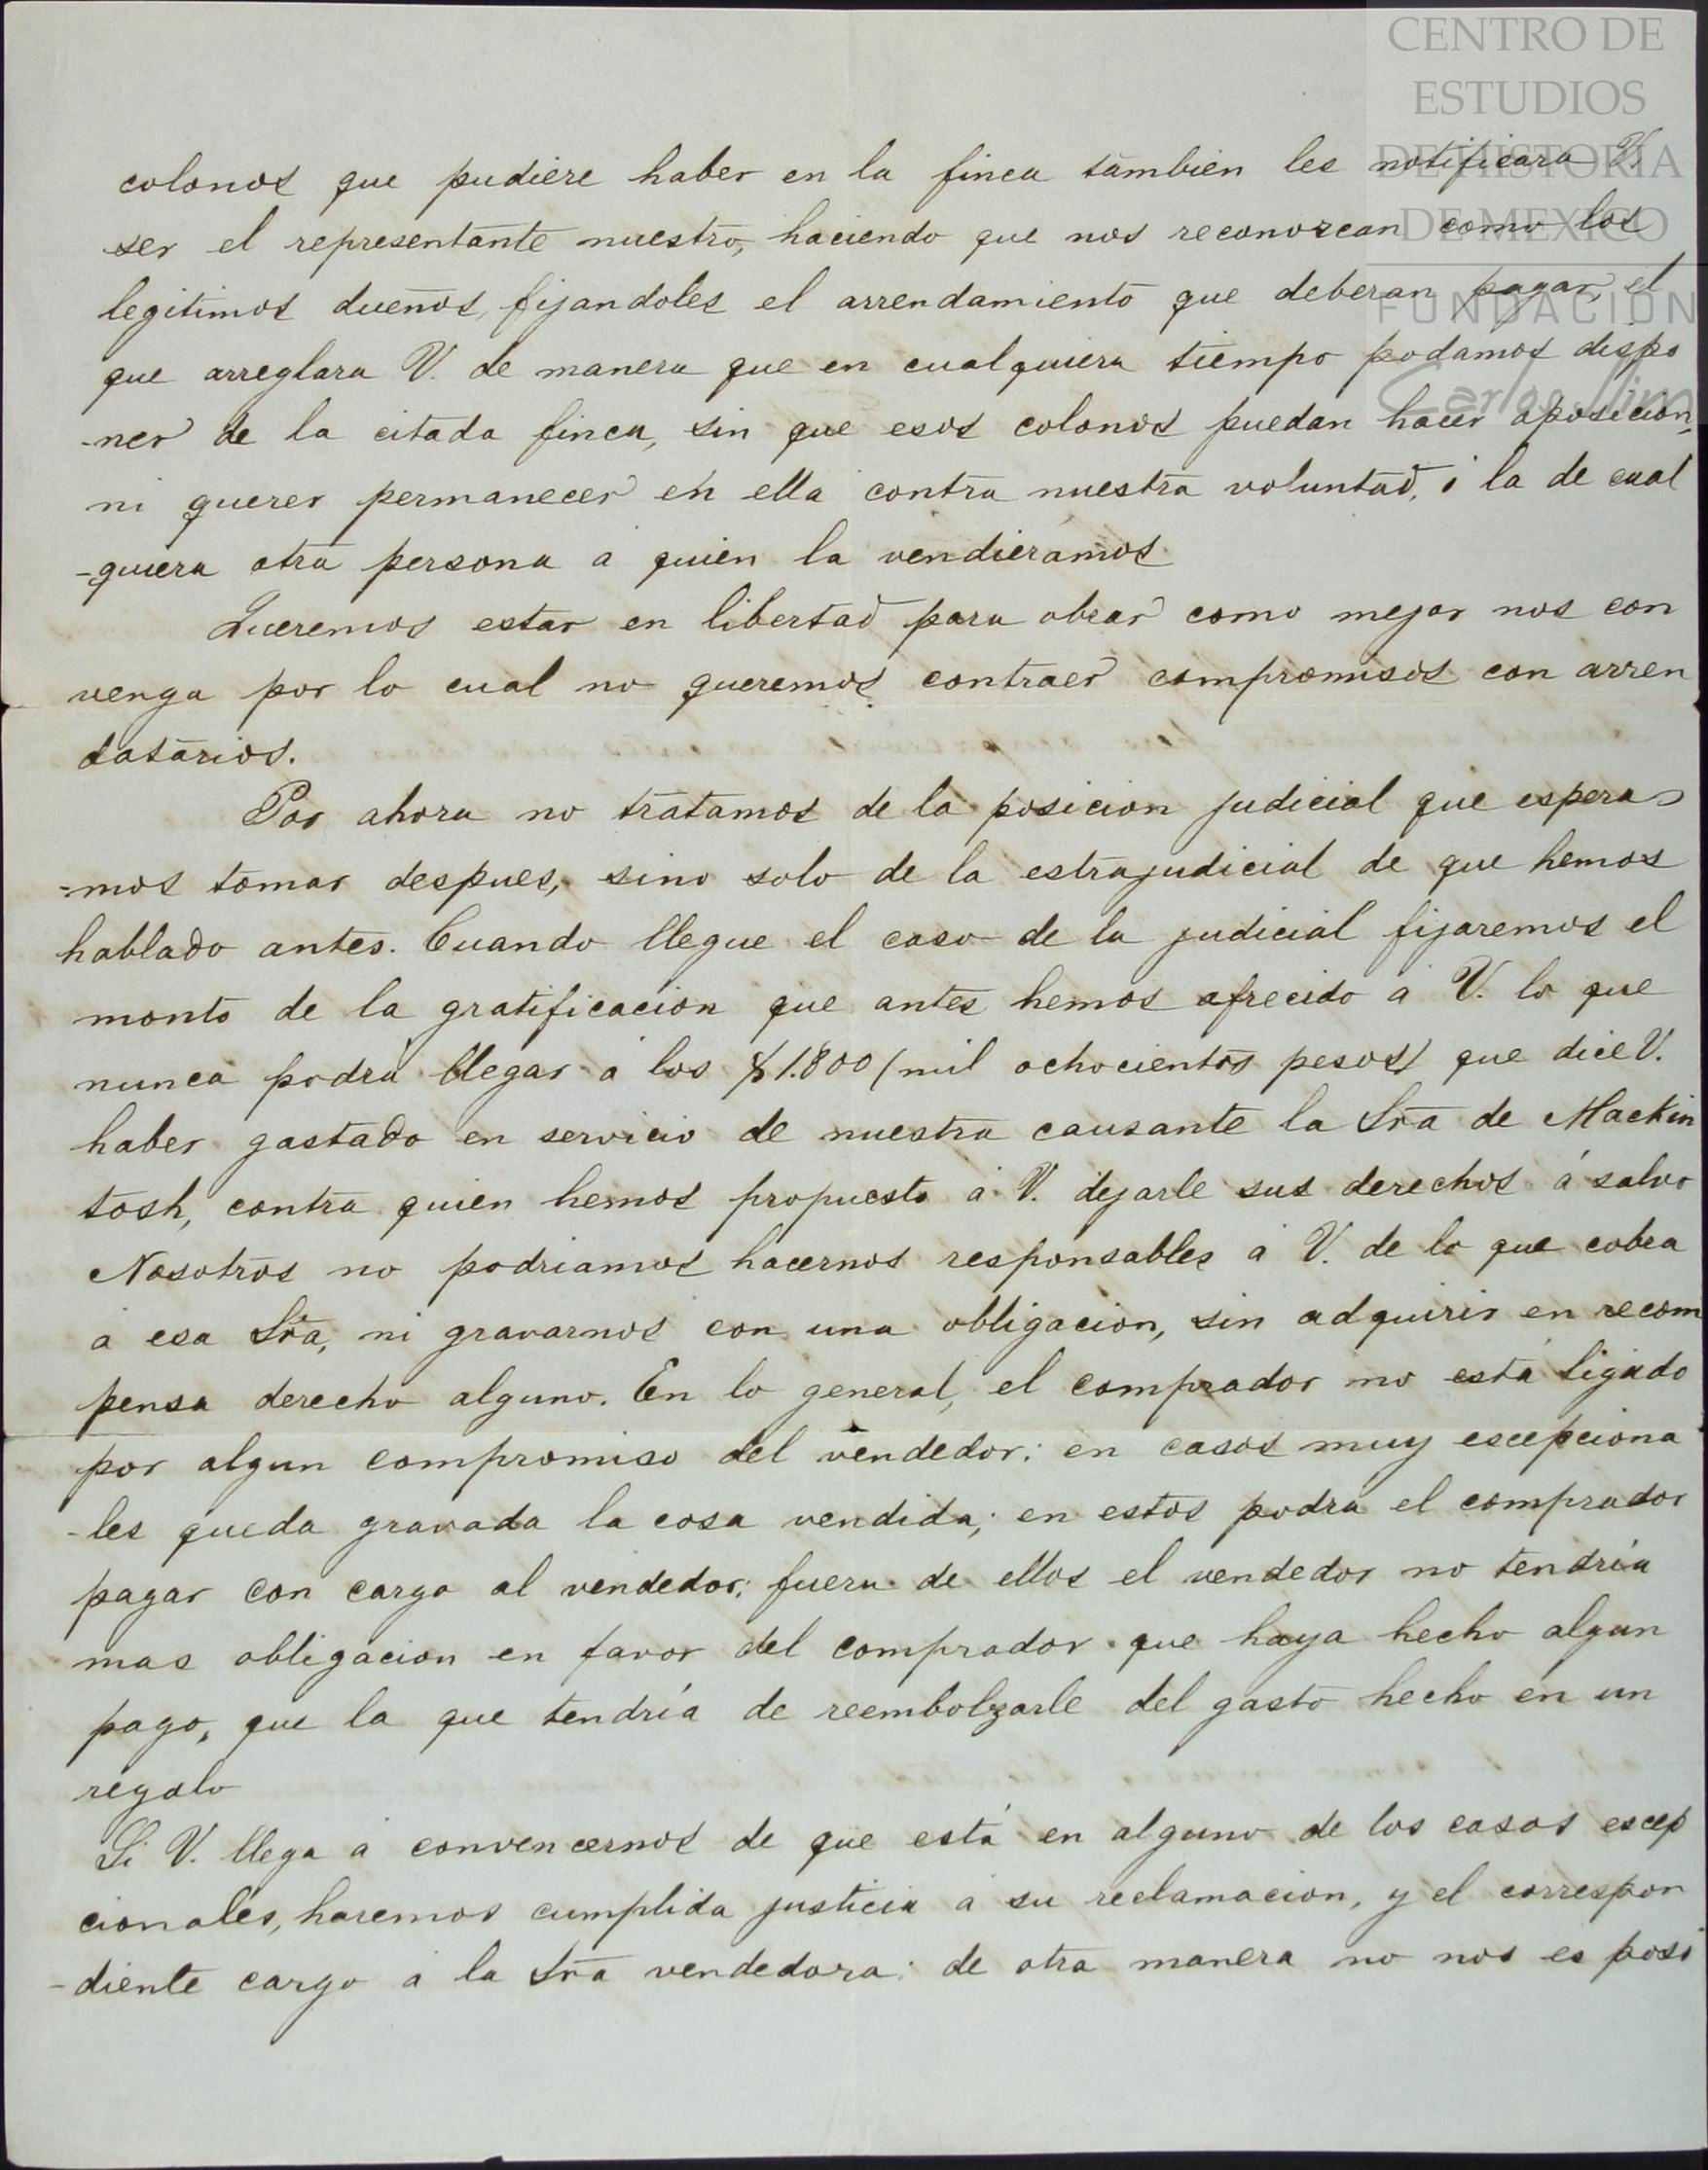 CENTRO DE
ESTUDIOS
DE HISTORIA
DE MEXICO
FUNDACION
Carlos Slim
colonos que pudiere haber en la finca tambien les notificara V.
ser el representante nuestro, haciendo que nos reconozcan como los
legitimos dueños, fijandoles el arrendamiento que deberan pagar, el
que arreglara V. de manera que en cualquiera tiempo podamos dispo
-ner de la citada finca, sin que esos colonos puedan hacer oposicion,
ni querer permanecer en ella contra nuestra voluntad, ó la de cual
-quiera otra persona a quien la vendieramos.
Queremos estar en libertad para obrar como mejor nos con
venga por lo cual no queremos contraer compromisos con arren
datarios.
Por ahora no tratamos de la posicion judicial que espera
=mos tomar despues, sino solo de la estrajudicial de que hemos
hablado antes. Cuando llegue el caso de la judicial fijaremos el
monto de la gratificacion que antes hemos ofrecido a V. lo que
nunca podrá llegar a los $1.800 (mil ochocientos pesos) que dice V.
haber gastado en servicio de nuestra causante la Sra de Mackin
tosh, contra quien hemos propuesto a V. dejarle sus derechos á salvo
Nosotros no podriamos hacernos responsables a V. de lo que cobra
a esa Sra, ni gravarnos con una obligacion, sin adquirir en recom
pensa derecho alguno. En lo general, el comprador no está ligado
por algun compromiso del vendedor: en casos muy escepciona
-les queda gravada la cosa vendida; en estos podra el comprador
pagar con cargo al vendedor; fuera de ellos el vendedor no tendría
mas obligacion en favor del comprador que haya hecho algun
pago, que la que tendría de reembolzarle del gasto hecho en un
regalo
Si V. llega a convencernos de que está en alguno de los casos escep
cionales, haremos cumplida justicia a su reclamacion, y el correspon
-diente cargo a la Sra vendedora; de otra manera no nos es posi